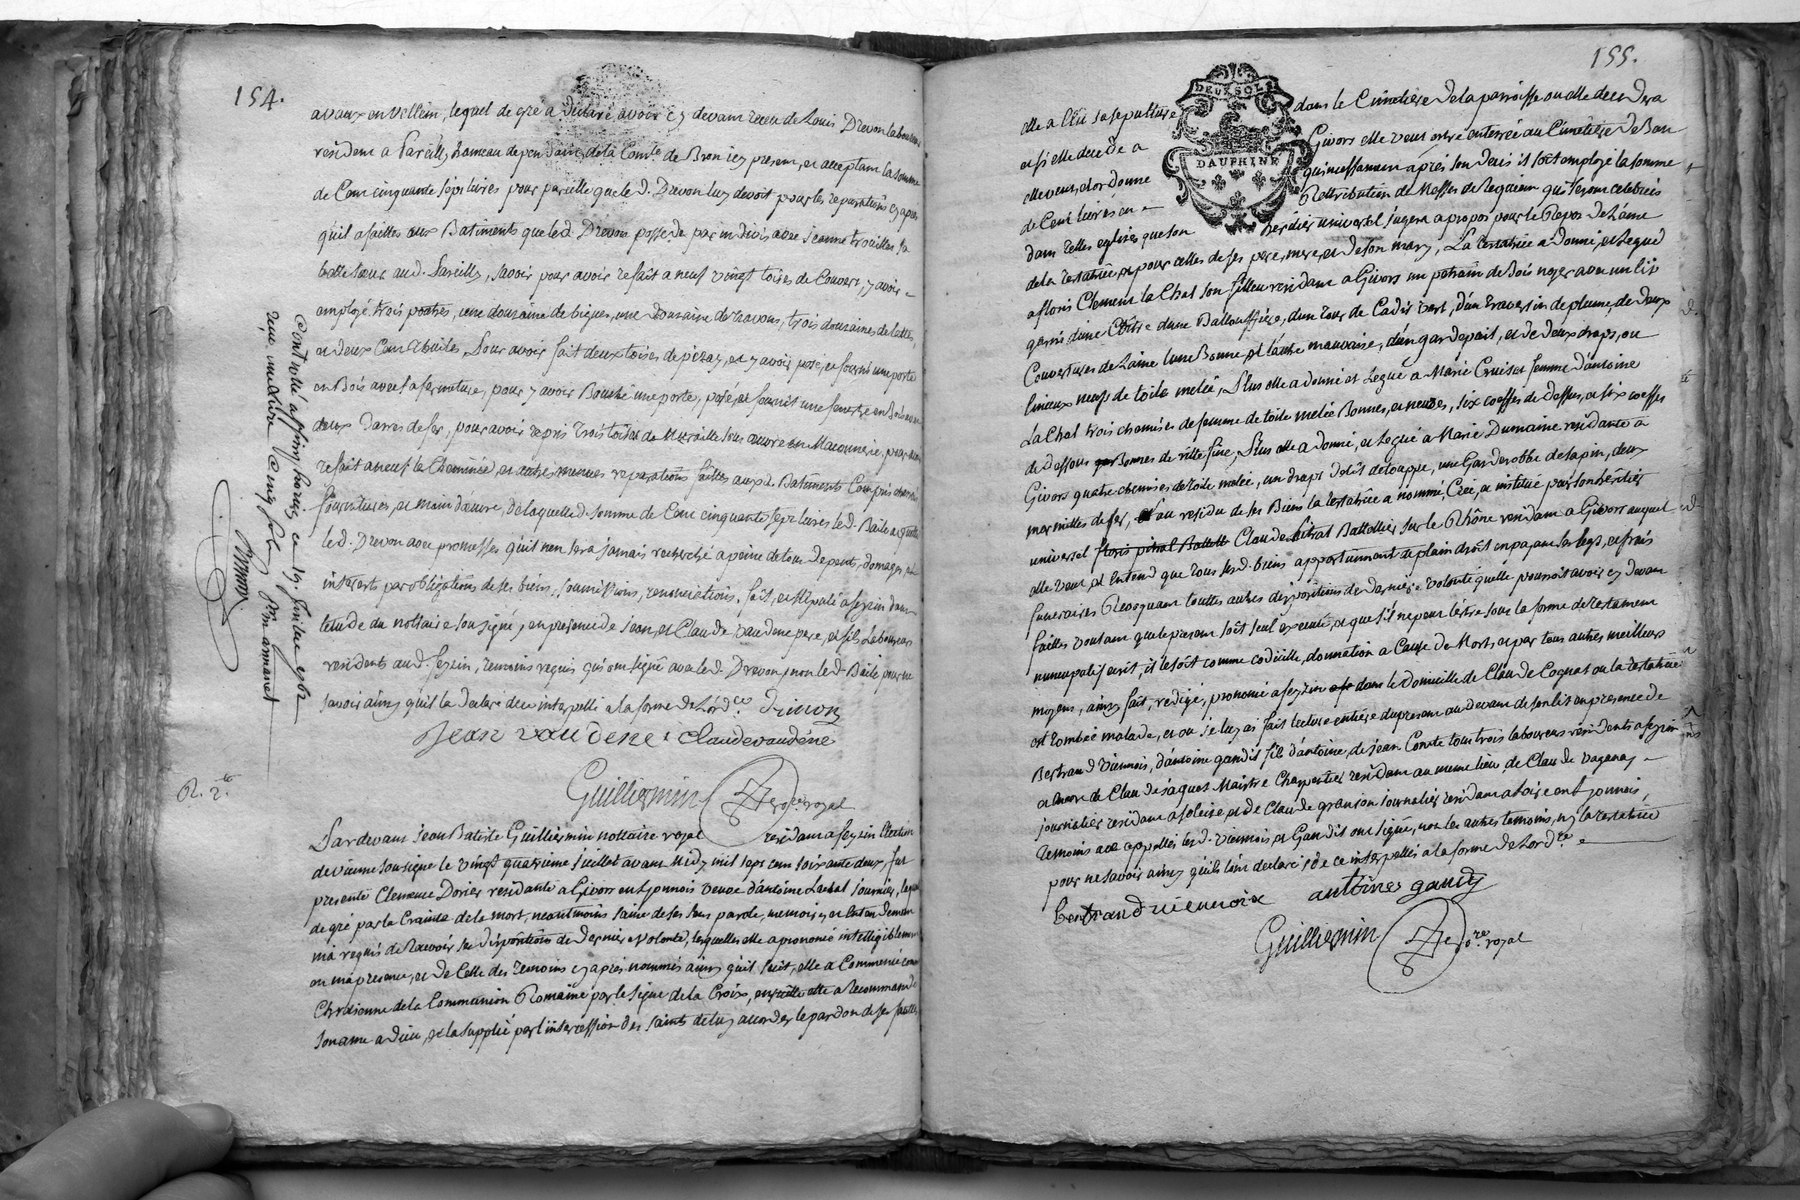 154.
avaux en Vellein, lequel de gré a Declaré avoir cy devant receu de Louis Drevon laboureur
resident a Parilly hameau dependant de la Com.te de Bron icy present, et acceptant la somme
de Cent cinquante sept livres pour parcelle que le d. Drevon luy devoit pour les reparations cy apres
qu'il a faittes aux Batiments que led. Drevon possede par indivis avec Jeanne trouillet sa
belle soeur aud. Pareilly, savoir pour avoir refait a neuf vingt toises de Couvert, y avoir
employé trois postres, une douzaine de bigues, une Douzaine de travons, trois douzaines de lattes,
et deux Cent thuiles, Plus avoir fait deux toises de pizay, et y avoir posé, et fourni une porte
en Bois avec sa fermeture, pour y avoir Bouché une porte, posé, et fournit une fenestre en Bois
deux barres de fer, pour avoir repris trois toises de Muraille sous oeuvre en Maconnerie, pour avoir
refait a neuf la Cheminée, et autres menues reparations faittes auxd. Batiments Compris
fournitures, et main d'oeuvre, de laquelle d. somme de Cent cinquante sept livres led. Baile a quitté
led. Drevon avec promesses qu'il n'en sera jamais recherché a peine de tous depens, domages, et
interests par obligations de ses biens, soumissions, renonciations, fait, et stipulé a feyzin dans
létude du nottaire soussigné, en presence de Jean, et Claude vaudene pere, et fils Laboureurs
residents aud. feyzin, temoins requis qui ont signé avec led. Drevon, non led. Baile pour ne
savoir ainsy qu'il la declaré de ce interpellé a la forme de L'ord.ce Drevon
Jean vaudene Claudevaudéne
Guilliermin no.re royal
Controllé a St Simphorien, ce 19. Juillet 1762
reçu une livre Cinq sols
R. 2.te
Pardevant Jean Batiste Guilliermin nottaire royal residant a feyzin Election
de vienne soussigné le vingt quatrieme Juillet avant Midy mil sept cent soixante deux, fut
presente Clemence Dorier residante a Givors en Lyonnois veuve d'antoine Lachal Journalier, laquelle
de gré par la Crainte de la mort, neantmoins saine de ses sens parole, memoire, et Entendement
m'a requis de Recevoir ses dispositions de Derniere volonté, lesquelles elle a prononcé intelligiblement
en ma presence, et de Celle des temoins cy après nommés ainsy qu'il suit, elle a Commencé comme
Chrétienne de la Communion Romaine par le signe de la Croix, ensuitte elle a Recommandé
son ame a dieu, et la supplié par l'intercession des saints de luy accorder le pardon de ses fautes,
155.
DEUX SOLS
DAUPHINE
elle a Elû sa sepulture dans le Cimetière de la parroisse ou elle decedera
et si elle decede a Givors elle veut estre enterrée au Cimetière de Ban
elle veut, et ordonne qu'incessament après son deces il soit employé la somme
de Cent livres en Rettribution de Messes de Requiem qui seront celebrées
dans telles eglises que son heritier universel jugera a propos pour le Repos de L'ame
de la testatrice, et pour celles de ses pere, mere, et de son mary, La testatrice a donné, et Legué
a floris Clement la Chal son filleul residant a Givors un petrain de Bois noyer avec un lit
garni d'une Coitre d'une Balouffière, d'un tour de Cadis vert, d'un traversin de plume, de deux
Couvertures de Laine l'une Bonne et l'autre mauvaise, d'un gardepait, et de deux draps, ou
linceux neufs de toile melée, Plus elle a donné et Legué a Marie Cruiset femme d'antoine
La Chal trois chemises de femme de toile melée Bonnes, et neuves, six coeffes de dessus, et six coeffes
de dessous Bonnes de ville fine, Plus elle a donné, et Legué a Marie Dumaine residante a
Givors quatre chemises de toile melée, un drapt de lit de touppe, une Garderobbe de sapin, deux
marmittes de fer, et au residu de ses Biens la testatrice a nommé Créé, et institué pour son heritier
universel floris pitrat Battell Claude pitrat Battellier sur le Rhône residant a Givors auquel
elle veut, et Entend que tous sesd. biens appartiennent de plain droit en payant les legs, et frais
funeraires Revoquant touttes autres dispositions de derniere volonté qu'elle pourroit avoir cy devant
faittes, voulant que le present soit seul executé, et que s'il ne peut l'estre sous la forme de testament
nuncupatif ecrit, il le soit comme codicille, donnation a Cause de Mort, et par tous autres meilleurs
moyens, ainsy fait, redigé, prononcé a feyzin dans le Domicille de Claude Cognat ou la testatrice
est tombée malade, et ou je luy ai fait lecture entière du present au devant de son lit en presence de
Bertrand viennois, d'antoine gandit fils d'antoine, de Jean Comte tous trois laboureurs residents a feyzin
et de Claude Jaquet Maistre Charpentier residant au meme lieu, de Claude vaganay
journalier residant a soleise, et de Claude grangon journalier residant a Loire en Lyonnois,
temoins avec appellés, led. viennois et Gandit ont signé, non les autres temoins, ny la testatrice
pour ne savoir ainsy qu'ils l'ont declaré de ce interpellés a la forme de L'ord.ce
bertrand viennoix antoines gandy
Guilliermin no.re royal